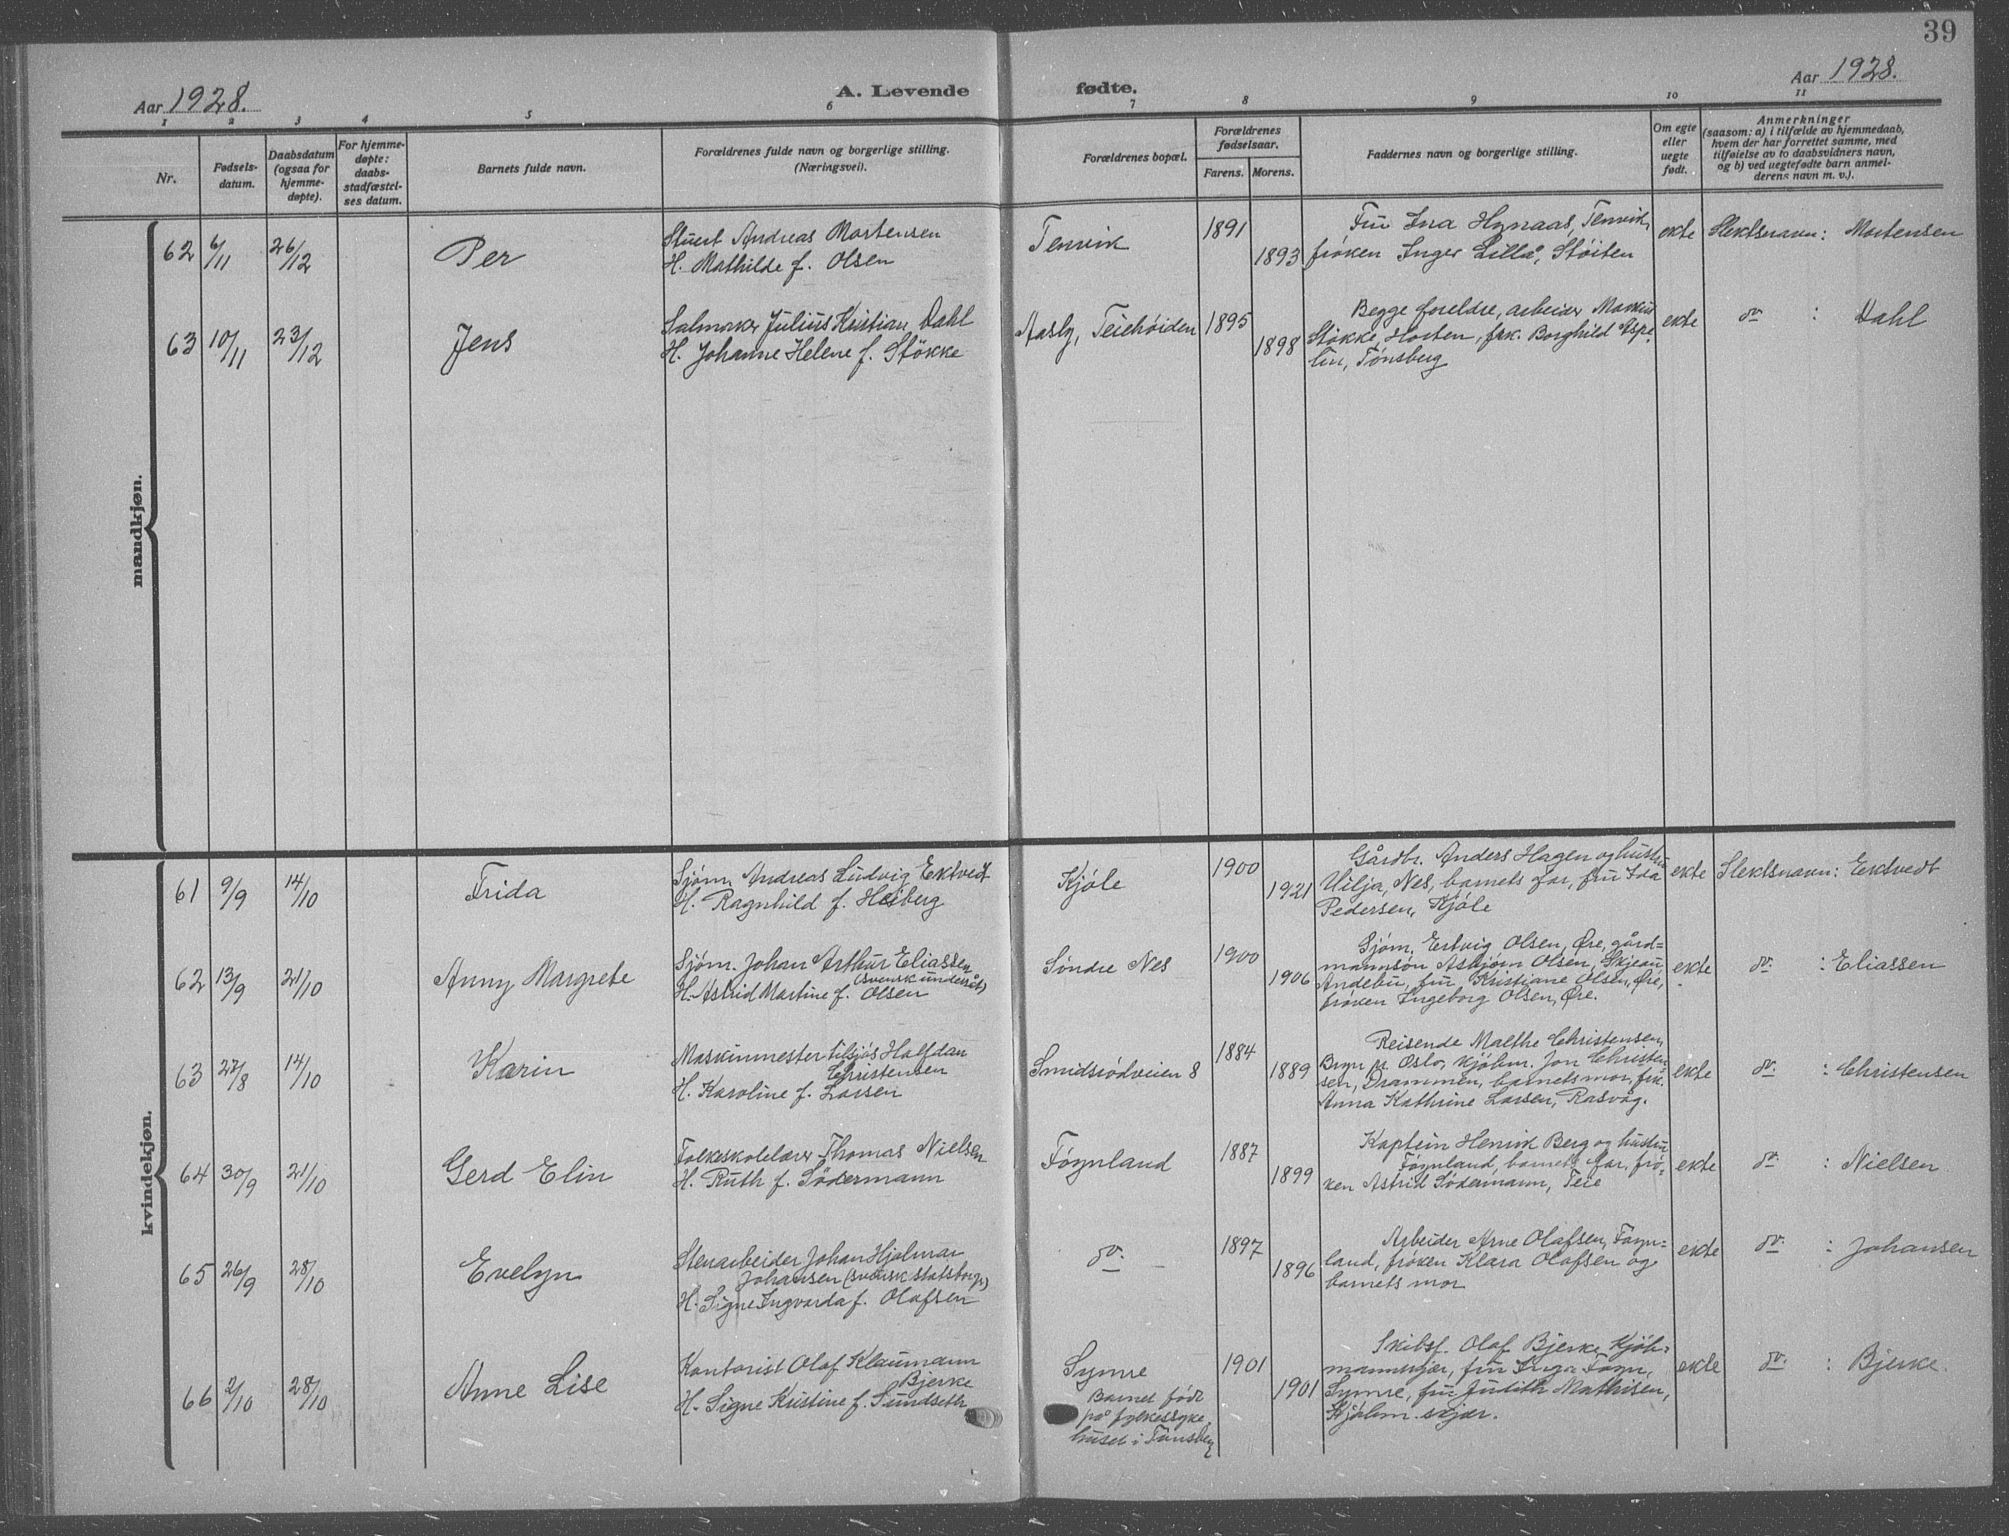 39
Aar 1928.
A. Levende fødte.
Aar 1928.
1 2 3 4 5 6 7 8 9 10 11
Nr.
Fødsels-
datum.
Daabsdatum
(ogsaa for
hjemme-
døpte).
For hjemme-
døpte:
daabs-
stadfæstel-
ses datum.
Barnets fulde navn.
Forældrenes fulde navn og borgerlige stilling.
(Næringsvei).
Forældrenes bopæl.
Forældrenes
fødselsaar.
Farens. Morens.
Faddernes navn og borgerlige stilling.
Om egte
eller
uegte
født.
Anmerkninger
(saasom: a) i tilfælde av hjemmedaab,
hvem der har forrettet samme, med
tilføielse av to daabsvidners navn,
og b) ved uegtefødte barn anmel-
derens navn m. v.).
mandkjøn.
62 6/11 26/12 Per
Stuert Andreas Mortensen
H. Mathilde f. Olsen
Tenvik
1891
1893
Fru Ina Hynaas, Tenvik,
frøken Inger Lillå, Støiten
ekte
Slektsnavn: Mortensen
63 10/11 23/12 Jens
Salmaker Julius Kristian Dahl
H. Johanne Helene f. Støkke
Aasly, Teiehøiden
1895
1898
Begge foreldre, arbeider Markus
Støkke, Horten, frk. Borghild Aspe-
lin, Tønsberg
ekte
do : Dahl
kvindekjøn.
61 9/9 14/10 Frida
Sjøm. Andreas Ludvig Ektvedt
H. Ragnhild f. Heiberg
Kjøle
1900
1921
Gårdbr. Anders Hagen og hustru
Vilja, Nes, barnets far, fru Ida
Pedersen, Kjøle
ekte
Slektsnavn: Ektvedt
62 13/9 21/10 Anny Margrete
Sjøm. Johan Arthur Eliassen
(svensk undersåt)
H. Astrid Martine f. Olsen
Søndre Nes
1900
1906
Sjøm. Ertvig Olsen, Øre, gård-
mannsøn Asbjørn Olsen, Skjeau,
Andebu, fru Kristiane Olsen, Øre,
frøken Ingeborg Olsen, Øre.
ekte
do : Eliassen
63 27/8 14/10 Karin
Maskinmester tilsjøs Halfdan
Christensen
H. Karoline f. Larsen
Smidsrødveien 8
1884
1889
Reisende Malthe Christensen,
Bryn pr. Oslo, kjøbm. Jon Christen-
sen, Drammen, barnets mor, frk.
Anna Kathrine Larsen, Rasvåg.
ekte
do : Christensen
64 30/9 21/10 Gerd Elin
Folkeskolelærer Thomas Nielsen
H. Ruth f. Södermann
Føynland
1887
1899
Kaptein Henrik Berg og hustru
Føynland, barnets far, frø-
ken Astrid Södermann, Teie
ekte
do : Nielsen
65 26/9 28/10 Evelyn
Stenarbeider Johan Hjalmar
Johansen (svensk statsborger)
H. Signe Ingvarda f. Olafsen
do
1897
1896
Arbeider Arne Olafsen, Føyn-
land, frøken Klara Olafsen og
barnets mor
ekte
do : Johansen
66 2/10 28/10 Anne Lise
Kontorist Olaf Klaumann
Bjerke
H. Signe Kristine f. Sundseth
Symre
Barnet født
på fylkessyke-
huset i Tønsberg
1901
1901
Skibsf. Olaf Bjerke, Kjøb-
mannskjær, fru Inga Føyn,
Symre, fru Judith Mathisen,
Kjøbm. skjær.
ekte
do : Bjerke